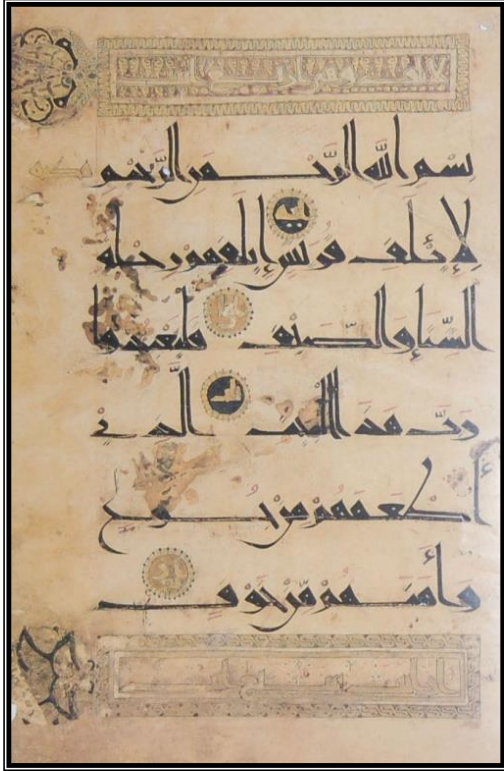 بِسْمِ اللَّهِ الرَّحْمَنِ الرَّحِيمِ
لِإِيلَفِ قُرَيْشٍ إِيلَفِهِمْ رِحْلَةَ
الشِّتَاءِ وَالصَّيْفِ فَلْيَعْبُدُوا
رَبَّ هَذَا الْبَيْتِ الَّذِي
أَطْعَمَهُمْ مِنْ جُوعٍ
وَأَمَنَهُمْ مِنْ خَوْفٍ